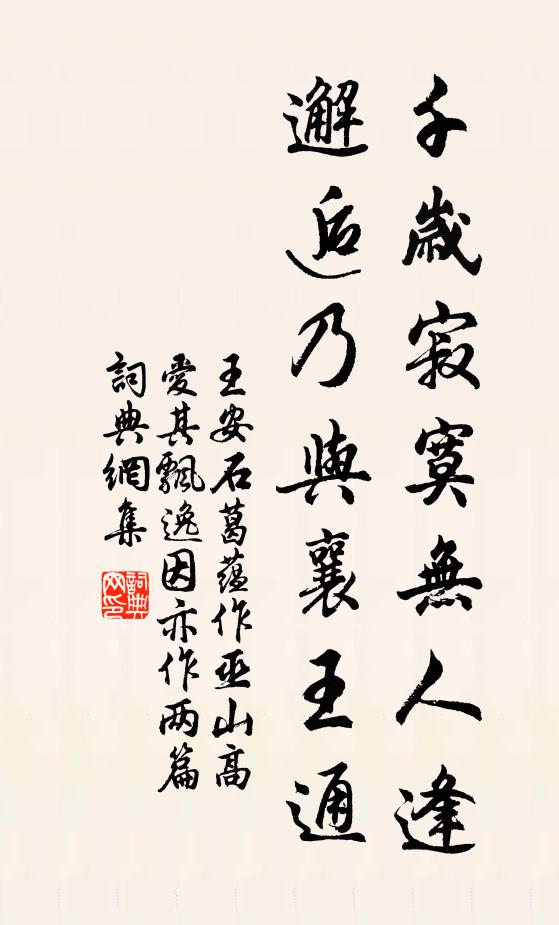 千歲寂寞無人逢
邂逅乃與襄王通
王安石葛蘊作巫山高
愛其飄逸因亦作兩篇
詞典網集
詞典
网印